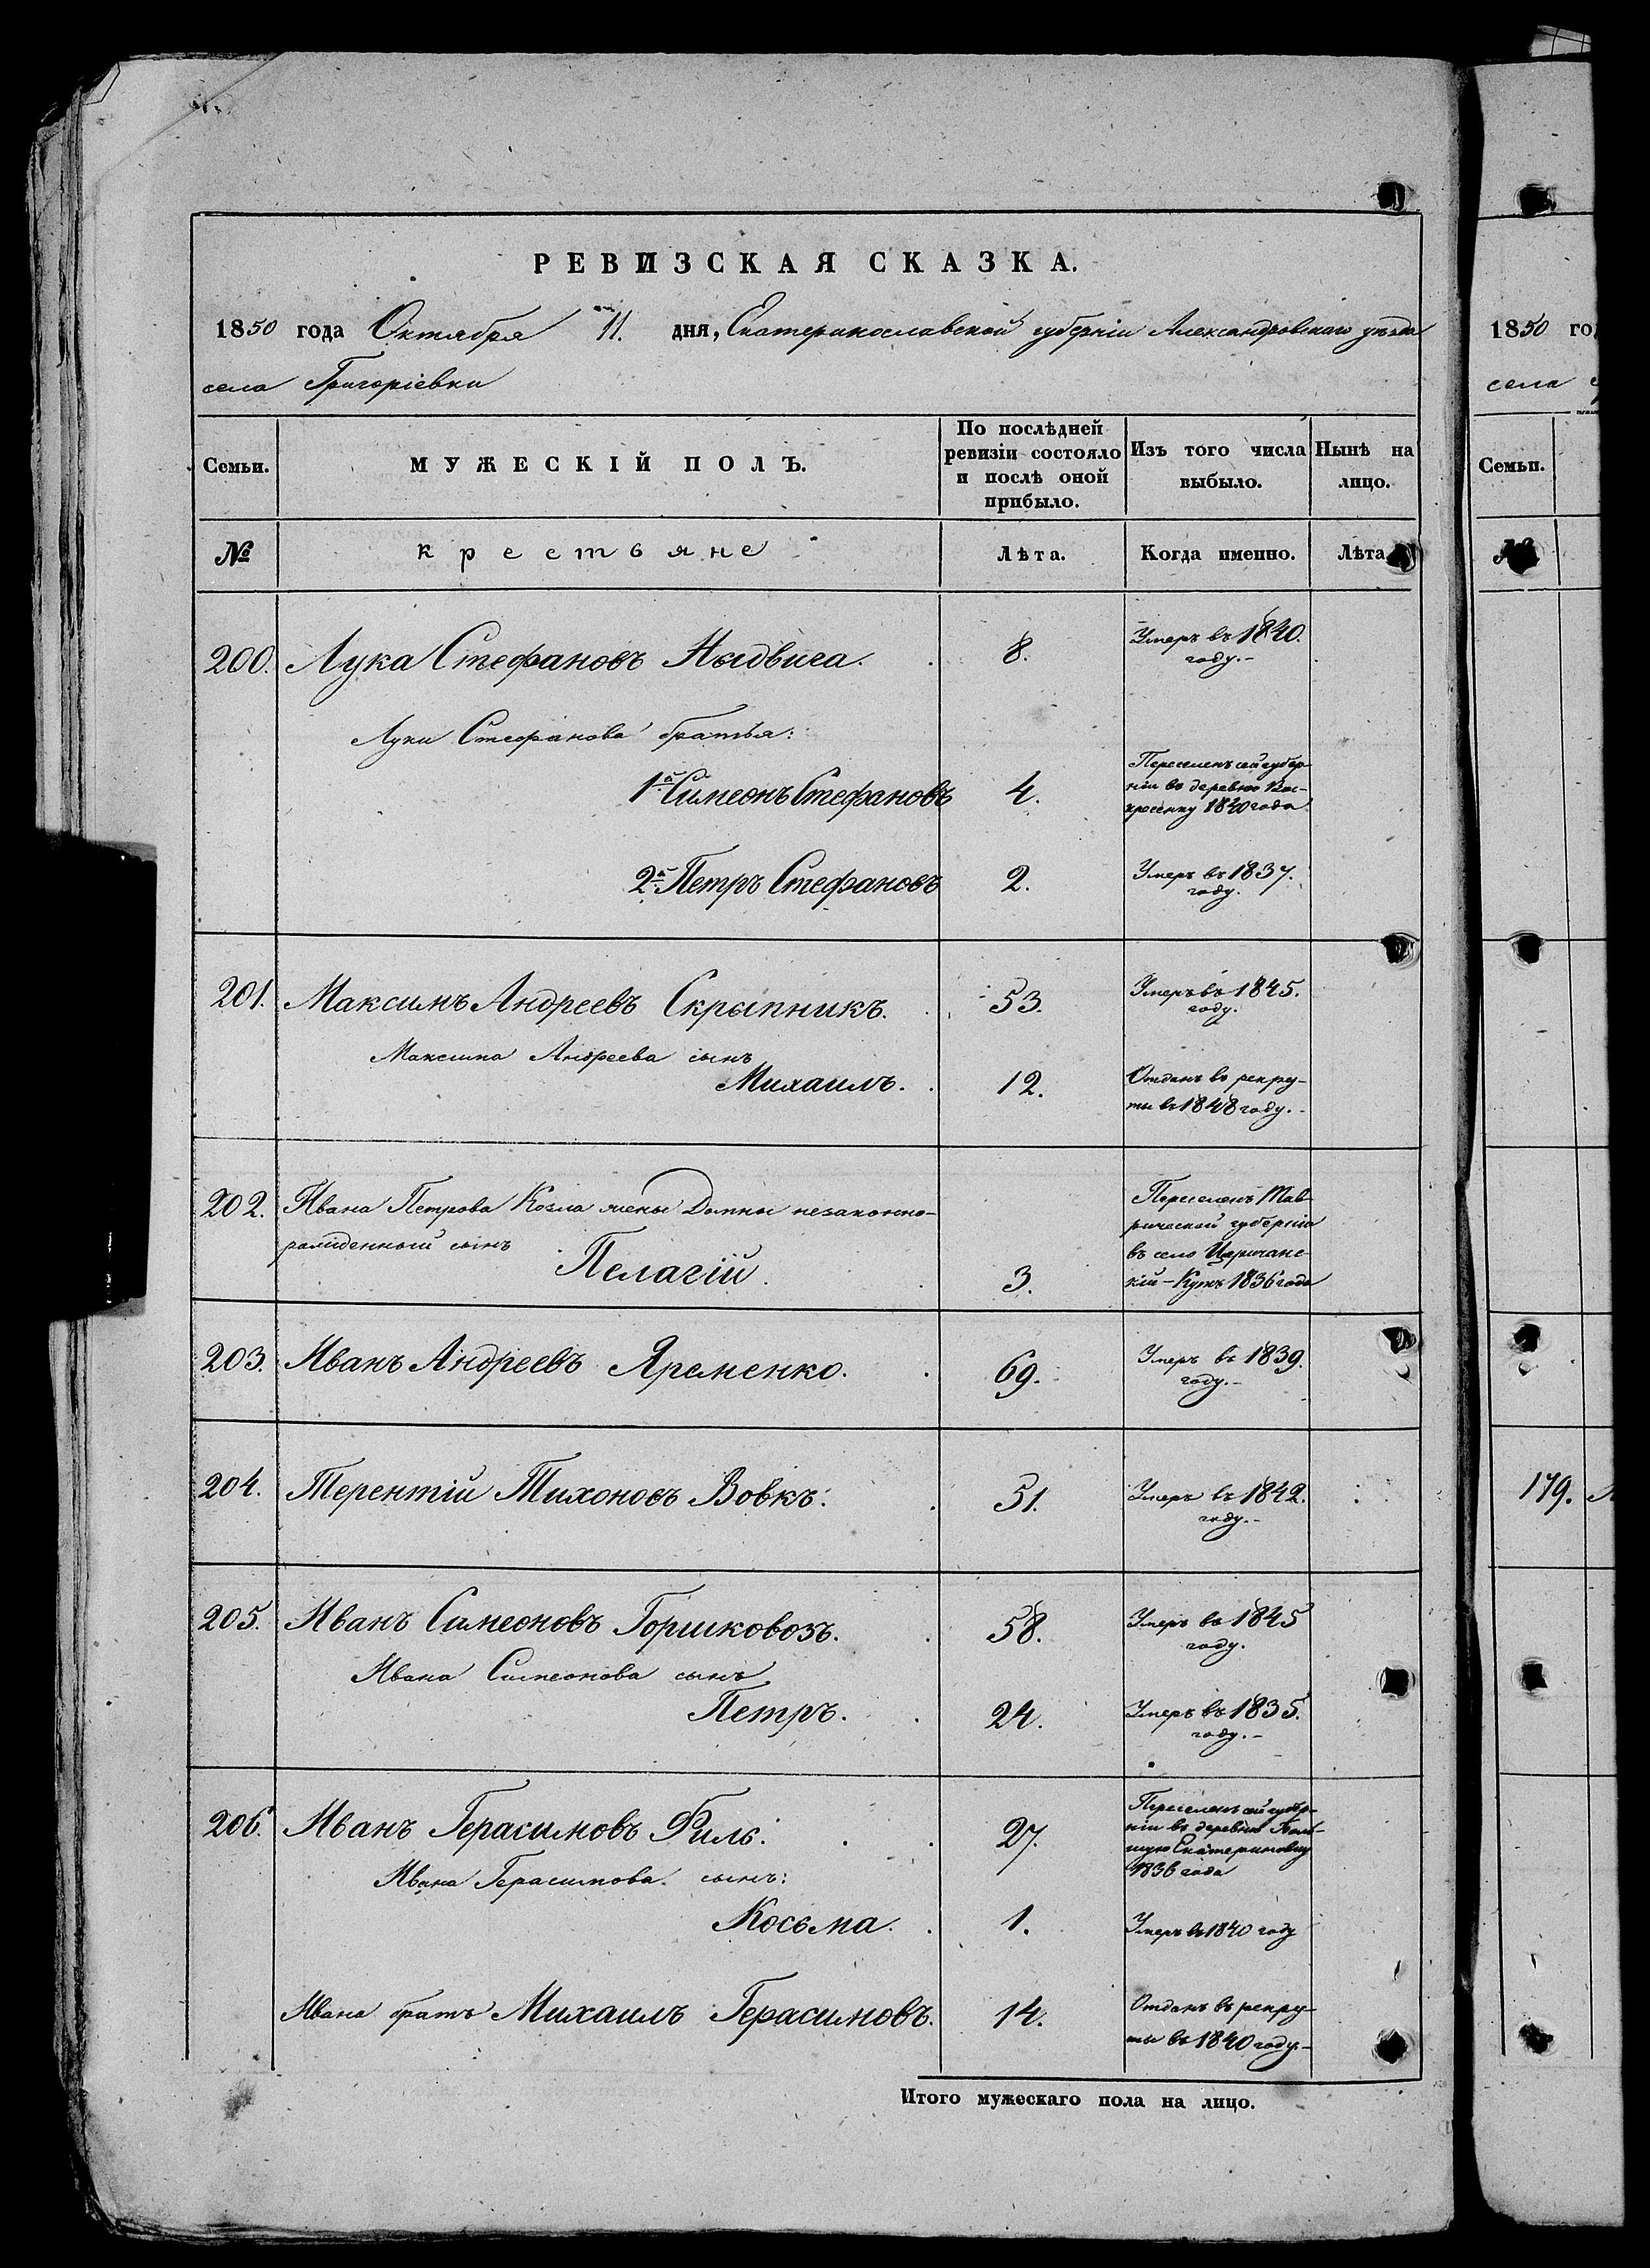 РЕВИЗСКАЯ СКАЗКА.
1850 года Октября 11. дня, Екатеринославской губерніи Александровскаго уѣзда
села Григоріевки
Семьи.
МУЖЕСКІЙ ПОЛЪ.
По послѣдней
ревизіи состояло
и послѣ оной
прибыло.
Изъ того числа
выбыло.
Нынѣ на
лицо.
№
крестьяне
Лѣта.
Когда именно.
Лѣта
200. Лука Стефановъ 8. Умеръ въ 1840.
году.-
Луки Стефанова братья:
1й Симеонъ Стефановъ 4. Переселенъ сей губер-
ніи въ деревню Вос-
кресенку 1840 года
2й Петръ Стефановъ 2. Умеръ въ 1837.
году.
201. Максимъ Андреевъ Скрыпникъ. 53. Умеръ въ 1845.
году.
Максима Андреева сынъ
Михаилъ. 12. Отданъ въ рекру-
ты въ 1848 году.-
202. Ивана Петрова Козла жены Домны незаконно-
рожденный сынъ
Пелагій. 3. Переселенъ Тав-
рической губерніи
въ село Царичанс-
кій-Кутъ 1836 года
203. Иванъ Андреевъ Яременко. 69. Умеръ въ 1839.
году.-
204. Терентій Тихоновъ Вовкъ. 51. Умеръ въ 1842.
году.-
205. Иванъ Симеоновъ Горшковозъ. 58. Умеръ въ 1845
году.
Ивана Симеонова сынъ
Петръ. 24. Умеръ въ 1835.
году.-
206. Иванъ Герасимовъ Филь. 27. Переселенъ сей губер-
ніи въ деревню Боль-
шую Екатериновку
1836 года
Ивана Герасимова сынъ:
Косьма. 1. Умеръ въ 1840 году
Ивана братъ Михаилъ Герасимовъ. 14. Отданъ въ рекру-
ты въ 1840 году.-
Итого мужескаго пола на лицо.
1850 го
села
Семьи.
179.